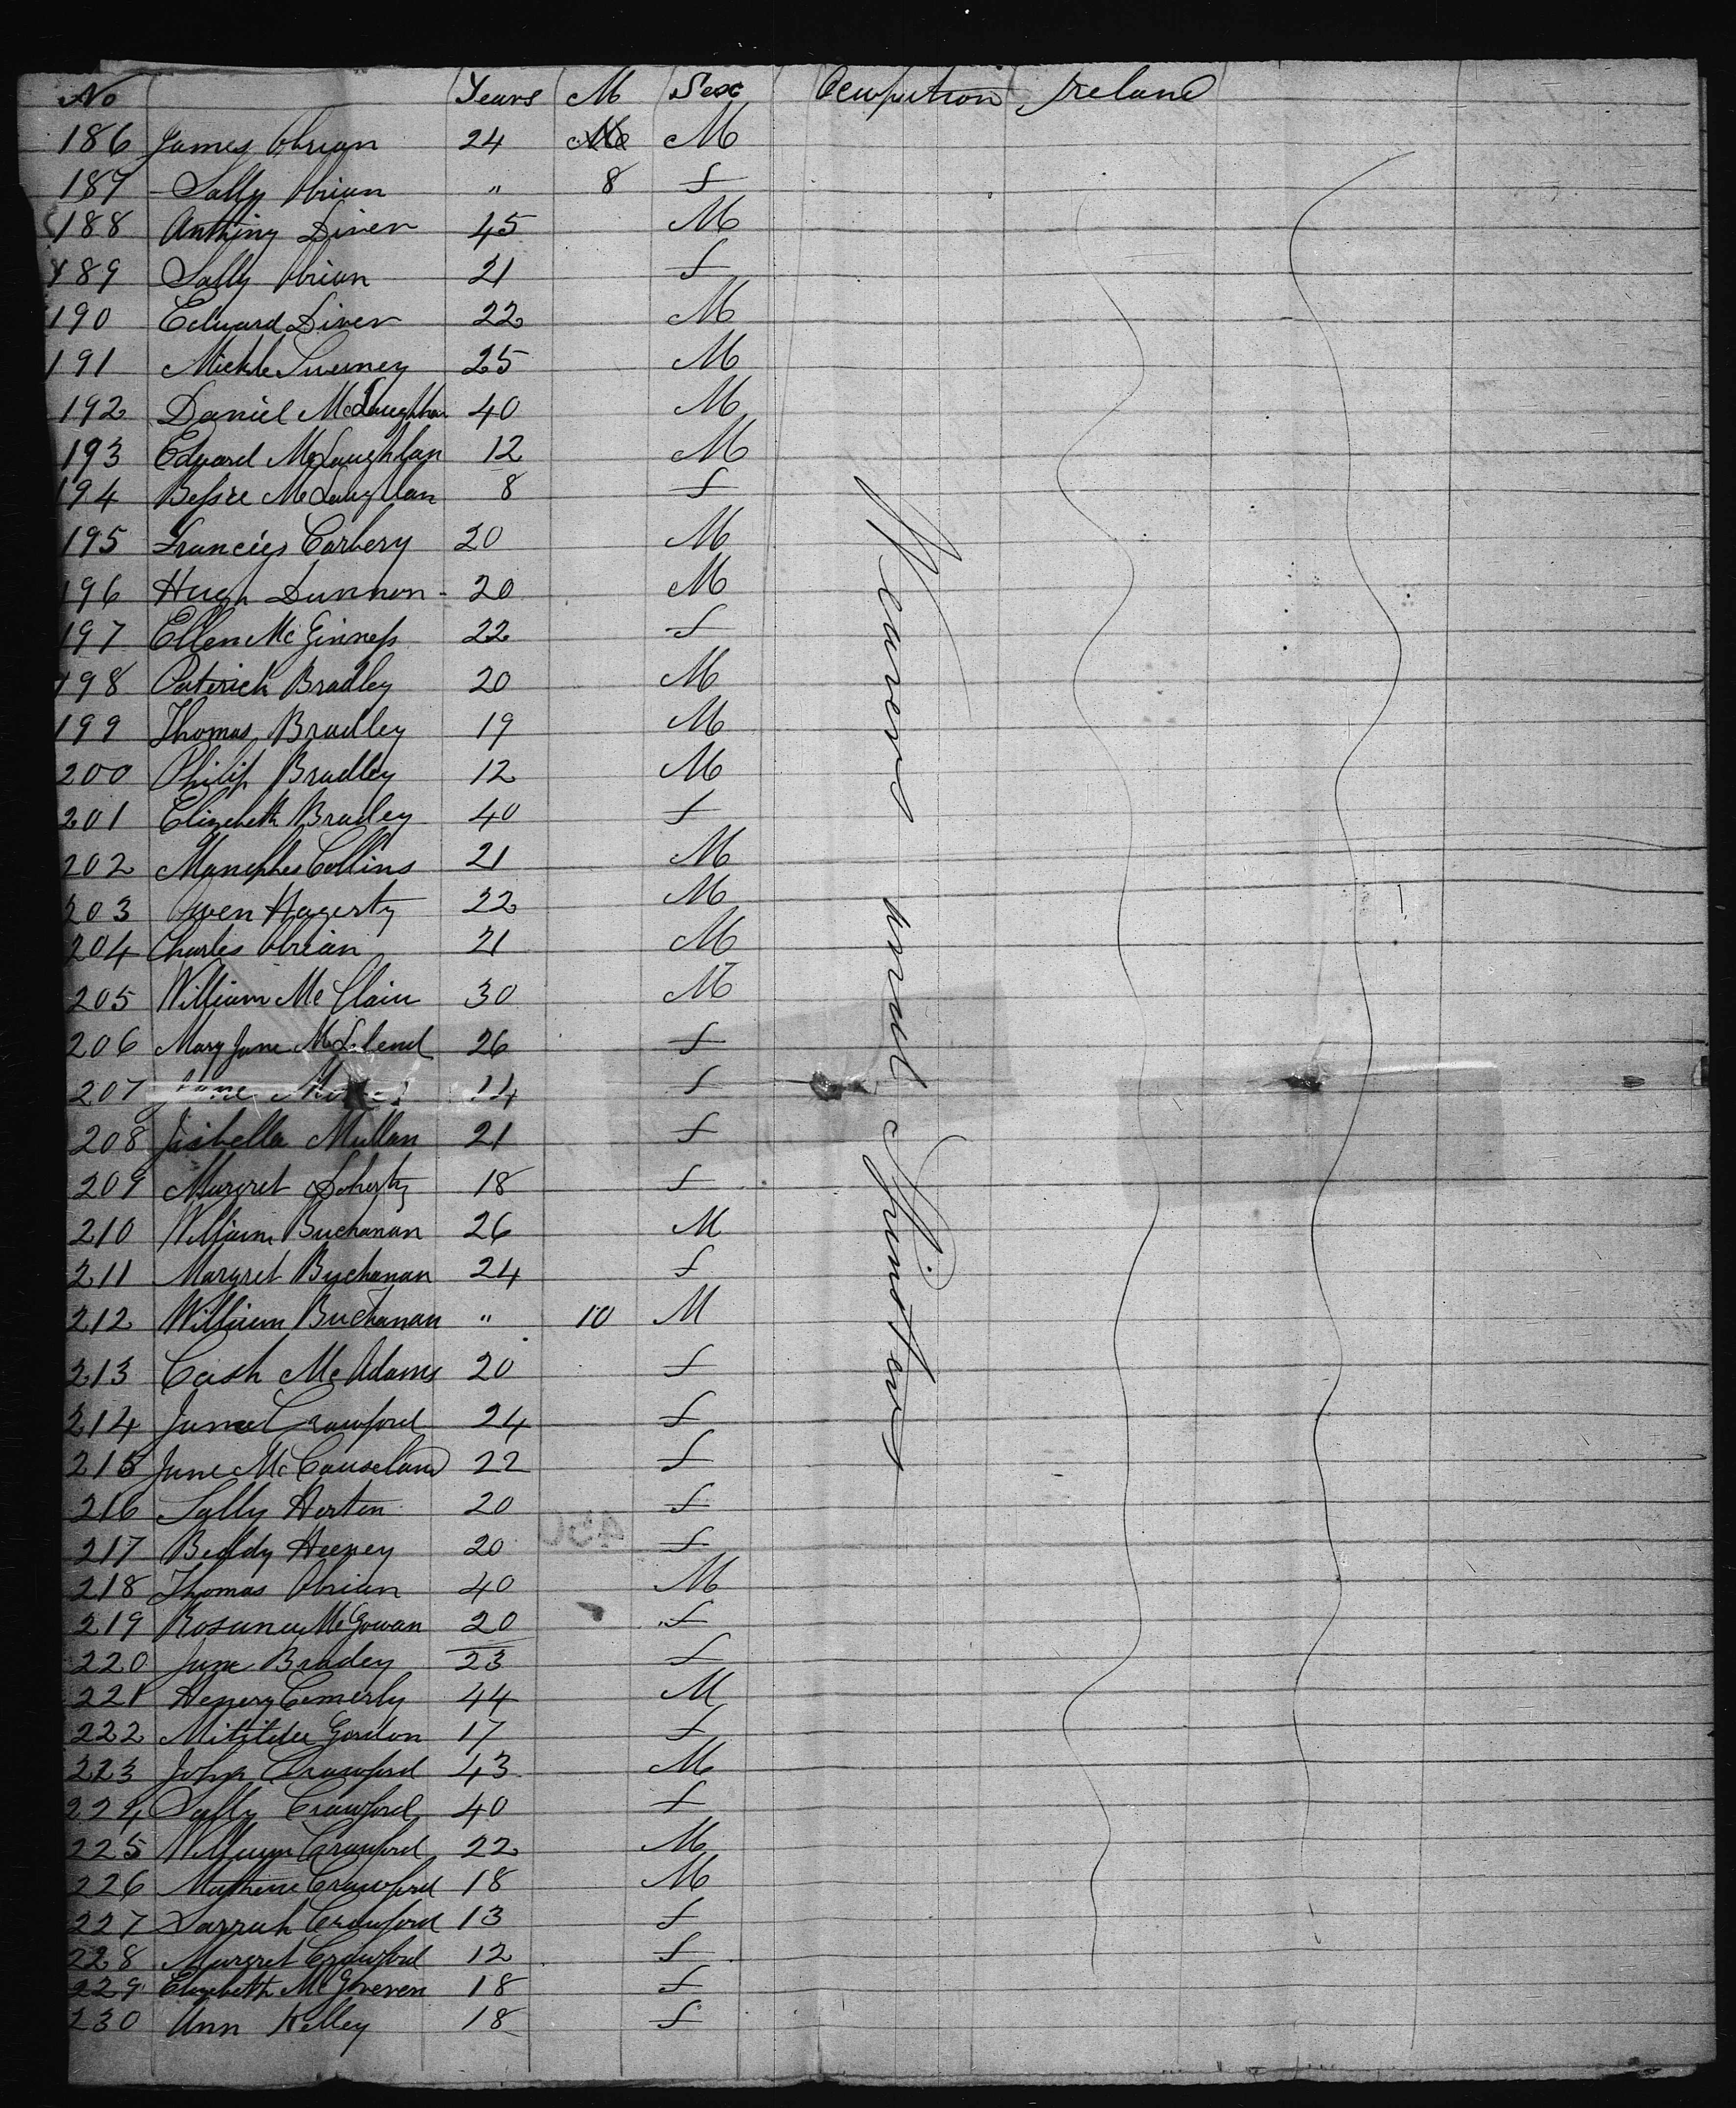 No Years M Sex Ocupution Ireland
186 James Obrian 24 M
187 Sally Obrian " 8 f
188 Anthiny Diver 45 M
189 Sally Obrian 21 f
190 Edward Diver 22 M
191 Mickle Sweney 25 M
192 Daniel McLaughlan 40 M
193 Edward McLaughlan 12 M
194 Bessie McLaughlan 8 f
195 Francies Carbery 20 M
196 Hugh Dunnon 20 M
197 Ellen McGinness 22 f
198 Paterick Bradley 20 M
199 Thomas Bradley 19 M
200 Philip Bradley 12 M
201 Elizebeth Bradley 40 f
202 Collins 21 M
203 Owen Hagerty 22 M
204 Charles Obrian 21 M
205 William McClain 30 M
206 Mary Jane 26 f
207 Jane 14 f
208 Jisibella Mullan 21 f
209 Margret Doherty 18 f
210 William Buchanan 26 M
211 Margret Buchanan 24 f
212 William Buchanan " 10 M
213 Cash McAdams 20 f
214 Jane Crawford 24 f
215 Jane McCauseland 22 f
216 Sally Horton 20 f
217 Biddy Heeney 20 f
218 Thomas Obrian 40 M
219 Rosanna McGowan 20 f
220 Jane Bradey 23 f
221 Henery 44 M
222 Gordon 17 f
223 John Crawford 43 M
224 Sally Crawford 40 f
225 William Crawford 22 M
226 Crawford 18 M
227 Sarrah Crawford 13 f
228 Margret Crawford 12 f
229 Elizebeth 18 f
230 Ann Kelley 18 f
Weavers and Spinsters